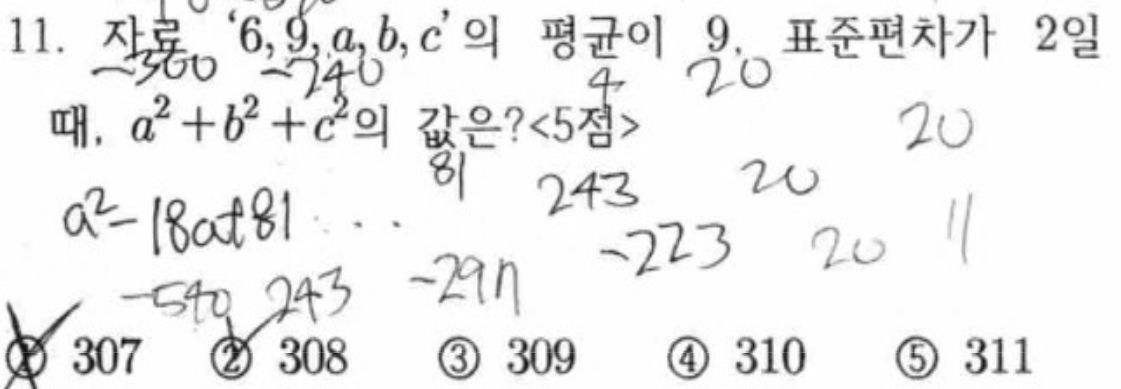 11. 자료 '6, 9, a, b, c'의 평균이 9, 표준편차가 2일
-360 -240 4 20
때, a²+b²+c²의 값은?<5점>
20
81 243 20
a²-18at81 ...
-223 20 11
-540 243
① 307 ② 308 ③ 309 ④ 310 ⑤ 311